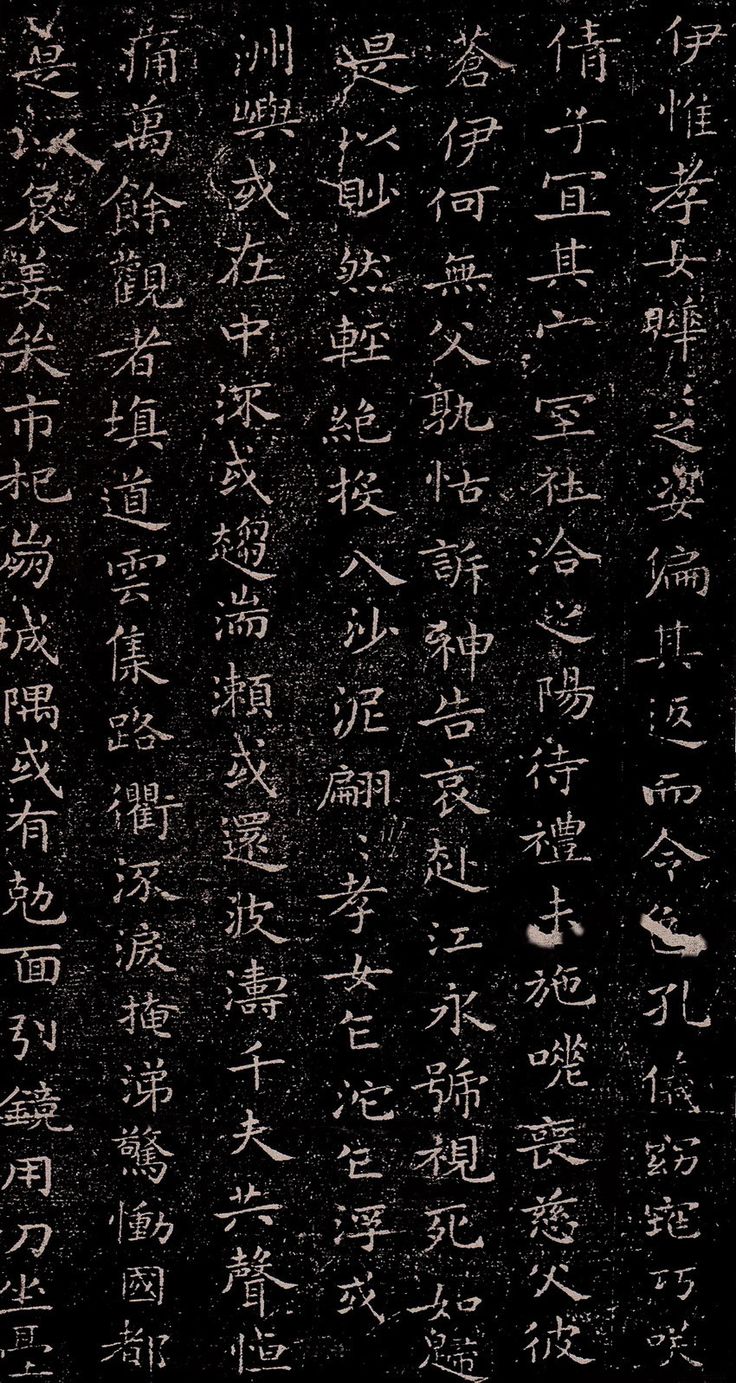 伊惟孝女曄〻之姿偏其返而令色孔儀窈窕巧咲
倩兮冝其家室在洽之陽待禮未施嗟喪慈父彼
蒼伊何無父孰怙訴神告哀赴江永號視死如歸
是以眇然輕絶投入沙泥翩〻孝女乍沉乍浮或
洲嶼或在中流或趨湍瀨或還波濤千夫共聲悼
痛萬餘觀者填道雲集路衢流淚掩涕驚慟國都
是以哀姜哭市杞崩城隅或有剋面引鏡用刀坐臺